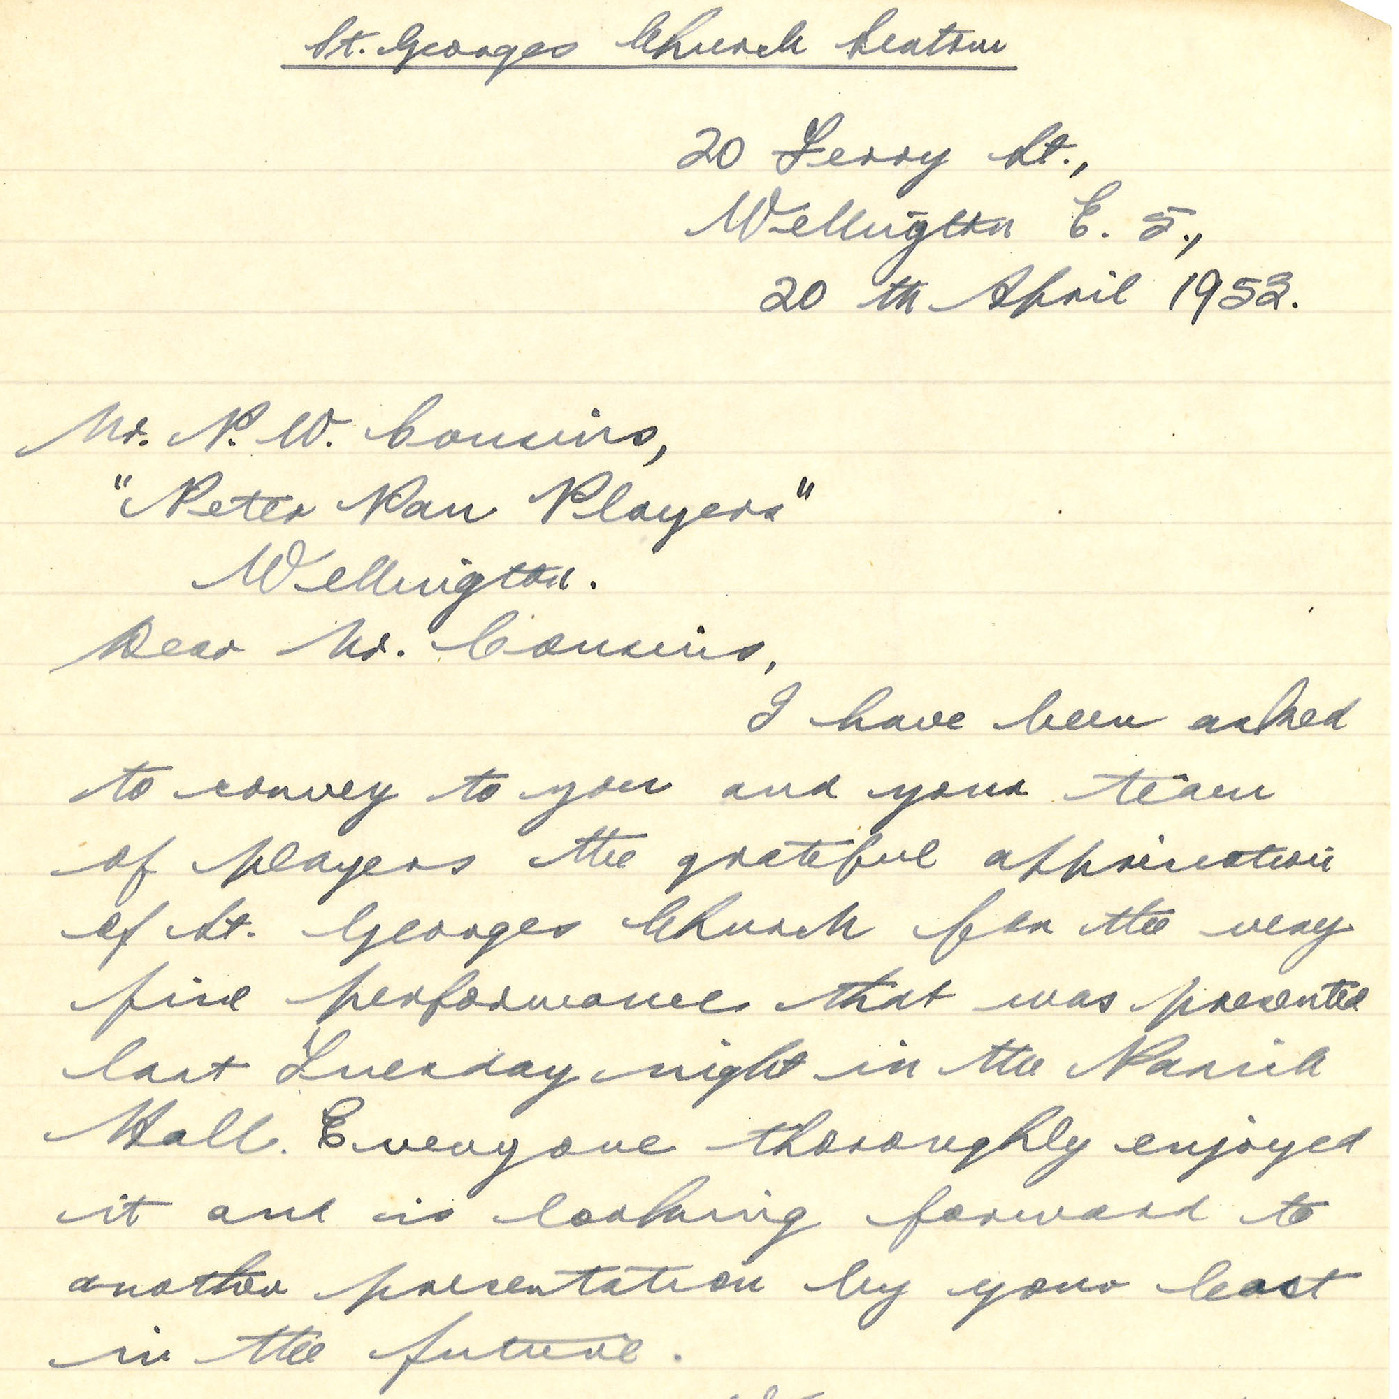 St. Georges Church Seatoun
20 Ferry St.,
Wellington E. 5.,
20 th April 1953.
Mr. P. W. Cousins,
"Peter Pan Players"
Wellington.
Dear Mr. Cousins,
I have been asked
to convey to you and your team
of players the grateful appreciation
of St. Georges Church for the very
fine performance that was presented
last Tuesday night in the Parish
Hall. Everyone thoroughly enjoyed
it and is looking forward to
another presentation by your cast
in the future.